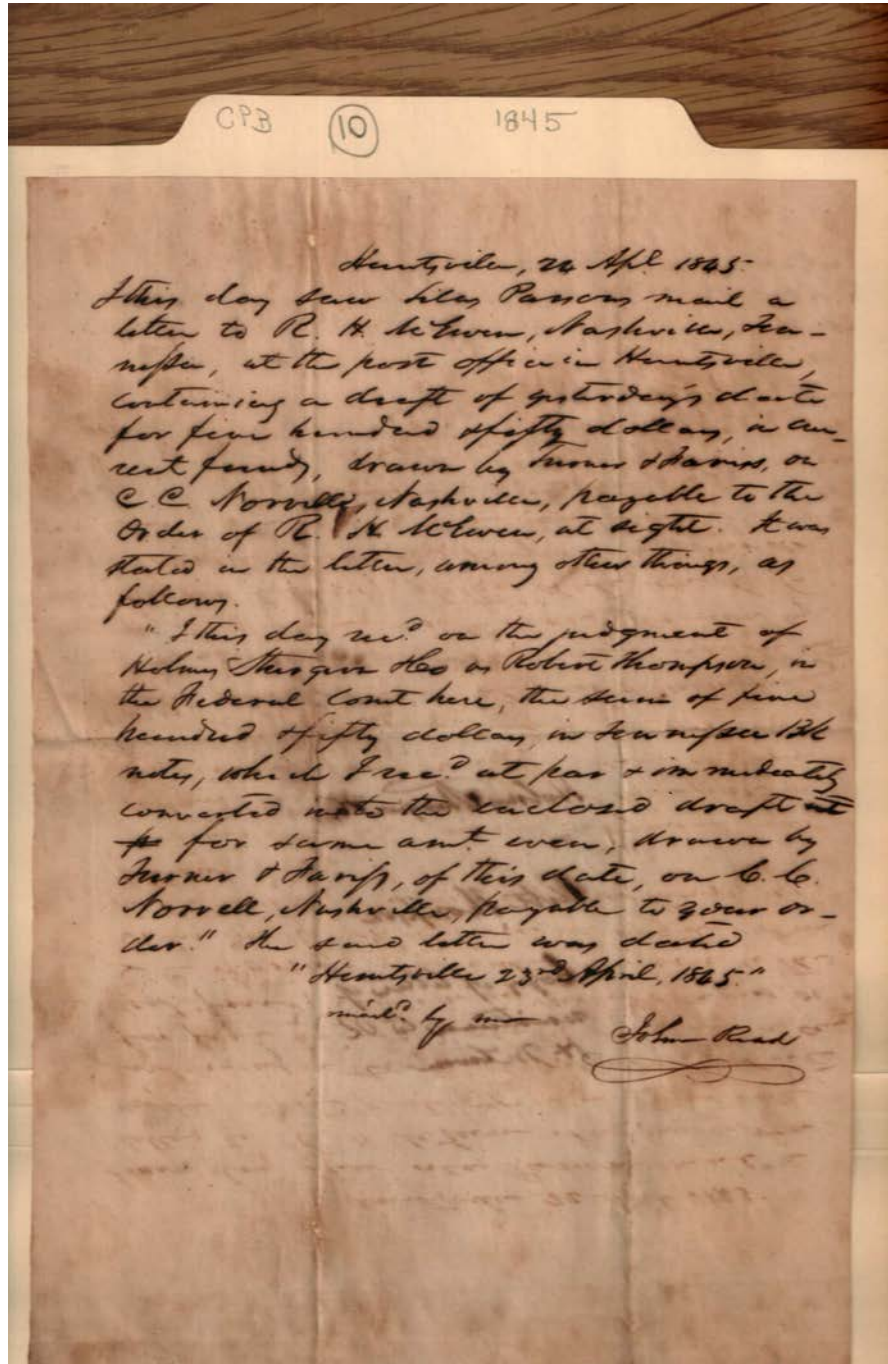 CPB 10 1845
Huntsville, 24 Apl. 1845.
I this day saw Silas Parsons mail a
letter to R. H. McEwen, Nashville, Ten-
nessee, at the post office in Huntsville,
containing a draft of yesterday's date
for five hundred & fifty dollars, in cur-
rent funds, drawn by Turner & Fariss, on
C C. Norvell, Nashville, payable to the
order of R. H. McEwen, at sight. It was
stated in the letter, among other things, as
follows.
"I this day recd. on the judgment of
Holmes & Co vs Robert Thompson, in
the Federal Court here, the sum of five
hundred & fifty dollars, in Tennessee Bk
notes, which I recd. at par & immediately
converted into the enclosed draft
for same amt. even, drawn by
Turner & Fariss, of this date, on C. C.
Norvell, Nashville, payable to your or-
der." The said letter was dated
"Huntsville 23rd April, 1845."
maild. by me
John Read